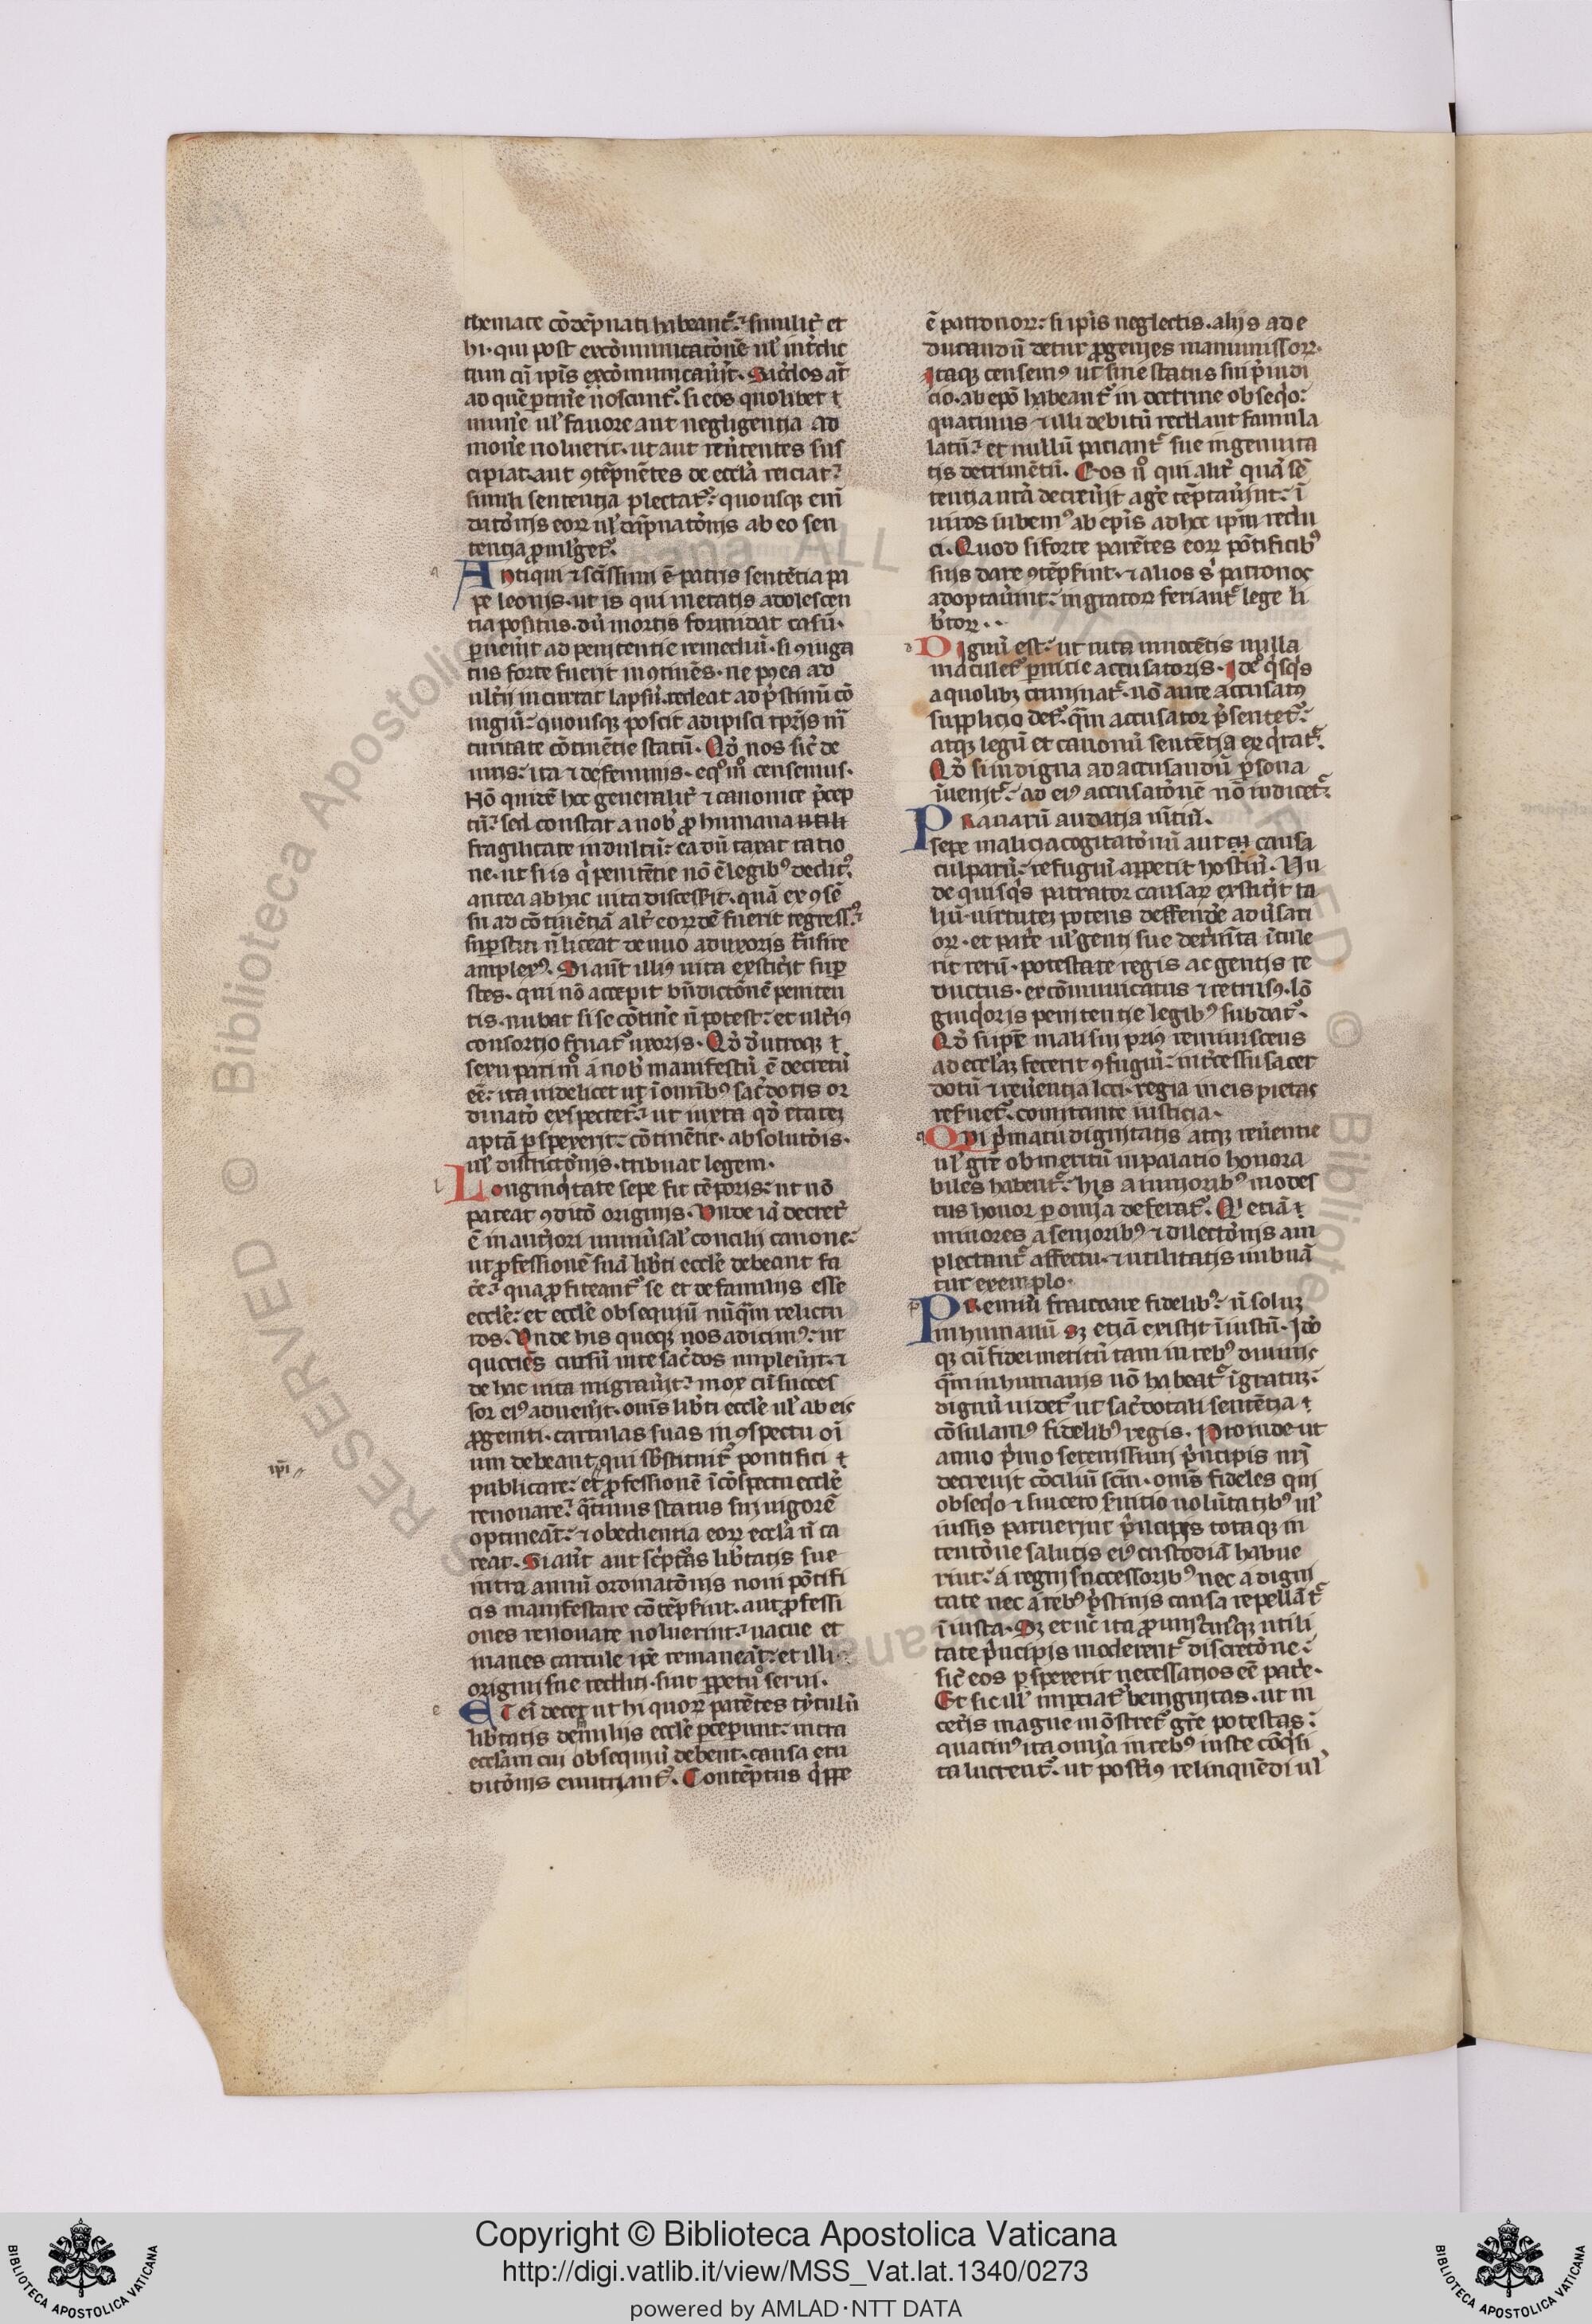 themate cōdēpnati habeant᷑. similit᷑ et
hi. qui post excōmunicatōnē ul̕ int᷑dic
tum cū ip̄is excōmunicauīt. Sac᷑dos aūt
ad quē ptinꝰe noscunt᷑. si eos quolibet t
mune ul̕ fauore aut negligentia ad
monꝰe noluerit. ut aut reūtentes sus
cipiat. aut ꝯtēpnētes de eccl̄a reiciat.
simili sententia plectat᷑. quousqꝫ em̄
datōnis eoꝝ ul̕ dāpnatōnis ab eo sen
tentia ꝓmulget᷑.
Antiqui ⁊ sc̄issimi ē patris sentētia pa
pe leonis. ut is qui in etatis adolescen
tia positus. dū mortis formidat casū.
ꝑuenit ad penitentie remediū. si ꝯiuga
tus forte fuerit incōtinēs. ne postea ad
ult᷑ii incurrat lapsū. redeat ad p̄stinū cō
iugiū. quousqꝫ possit adipisci tp̄ris m
turitate cōtinētie statū. Qd̄ nos sic̄ de
uiris. ita ⁊ de feminis. eq̄ mō censemus.
Nō quidē hec generalit᷑ ⁊ canonice p̄cep
tū. sed constat a nob̄ ꝓ humana utili
fragilitate indultū. ea dū taxat ratio
ne. ut si is q̄ penitētie nō ē legibꝰ deditꝰ
antea ab hac uita discesserit. quā ex ꝯsē
su ad cōtinētiā alt᷑ eoꝝdē fuerit regressꝰ
suꝑstiti n̄ liceat denuo ad uxoris t᷑nsire
amplexꝰ. Si aūt illiꝰ uita extitit sup
stes. qui nō accepit bn̄dictōnē peniten
tis. nubat si se cōtinꝰe n̄ potest. et ult᷑iꝰ
consortio fruat᷑ uxoris. Qd̄ d̄ utroqꝫ t
sexu pari mō a nob̄ manifestū ē decretū
eē. ita uidelicet ut ī omībꝰ sac᷑dotis or
dinatō exspectet᷑. ut iuxta qd̄ etatē
aptā ꝑspexerit. cōtinētie. absolutōis.
ul̕ districtōnis. tribuat legem.
Longinq̄tate sepe fit tēporis. ut nō
pateat ꝯditō originis. Unde iā decret᷑
ē in anteriori uniūsal̕ concilii canone.
ut ꝓfessionē suā lib̄ti eccl̄e debeant fa
c᷑e. qua ꝓfiteant᷑ se et de familiis esse
eccl̄e. et eccl̄e obsequiū nūq̄m relictu
ros. Unde his quoqꝫ nos adicimꝰ. ut
quociēs cursū uite sac᷑dos impleūit. ⁊
de hac uita migraūit. mox cū succes
sor eiꝰ aduenit. om̄s lib̄ti eccl̄e ul̕ ab eis
ꝓgeniti. cartulas suas in ꝯspectu oī
um debeant, qui sb̄stituit᷑ pontifici t
publicare. et ꝓfessionē ī cōspectu eccl̄e
renouare. q̄tinus status sui uigorē
optineāt. ⁊ obedientia eoꝝ eccl̄a n̄ ca
reat. Si aūt aut sc̄pturas lib̄tatis sue
intra annū ordinatōnis noui pōtifi
cis manifestare cōtēpserint. aut ꝓfessi
ones renouare noluerint. uacue et
inanes cartule ip̄e remaneāt. et illi
origini sue redditi. sint ꝑpetuo serui.
Et eī decet ut hi quoꝝ parētes tytulū
lib̄tatis de familiis eccl̄e ꝑceperunt. intra
eccl̄am cui obsequiū debent. causa eru
ditōnis enutriant᷑. Contēptus q̄ppe
ē patronoꝝ. si ip̄is neglectis. aliis ad e
ducandū detur ꝓgenies manumissoꝝ.
Itaqꝫ censemꝰ ut sine status sui p̄iudi
cio. ab ep̄o habeant᷑ in doctrine obseq̄o.
quatinus ⁊ illi debitū reddant famula
latū. et nullū patiant᷑ sue ingenuita
tis detrimētū. Eos ū qui alit᷑ quā sē
tentia nr̄a decreuit age᷑ tēptauīnt. ī
uitos iubemꝰ ab ep̄is ad hec ip̄m redu
ci. Quod si forte parētes eoꝝ pōtificibꝰ
suis dare ꝯtēps̄int. ⁊ alios s᷑ patronos
adoptauīnt. ingratoꝝ feriant᷑ lege li
b᷑toꝝ..
Dignū est. ut uita innocētis nulla
maculet᷑ ꝑnicie accusatoris. Ideo q̄sq̄s
a quolibꝫ criminat᷑. nō ante accusatꝰ
supplicio det᷑. q̄m accusator p̄sentet᷑.
atqꝫ legū et canonū sentētia exq̄rat᷑.
Qd̄ si indigna ad accusandū ꝑsona
īuenit᷑. ad eiꝰ accusatōnē nō iudicet᷑.
Prauarū audatia mētiū.
sepe malicia cogitatōnū aut cū causa
culparū. refugiū appetit hostiū. Un
de quisq̄s patrator causaꝝ exstit᷑it ta
liū. uirtutē potens deffende᷑ ad ūsari
oꝝ. et pat᷑e ul̕ genti sue det᷑mīta ītule
rit rerū. potestate regis ac gentis re
ductus. excōmunicatus ⁊ retrusꝰ. lō
giq̄oris penitentie legibꝰ subdat᷑.
Qd̄ si ip̄e mali sui priꝰ reminiscens
ad eccl̄aꝫ fecerit ꝯfugiū. int᷑cessu sacer
dotū ⁊ reūentia loci. regia in eis pietas
res̄uet᷑. comitante iusticia.
Qui p̄matū dignitatis atqꝫ reūentie
ul̕ gr̄e ob meritū in palatio honora
biles habent᷑. his a iunioribꝰ modes
tus honor ꝑ omīa deferat᷑. Q̄ etiā t
minores a senioribꝰ ⁊ dilectōnis am
plectant᷑ affectu. ⁊ utilitatis imbuā
tur exemplo.
Premiū fraudare fidelibꝰ. n̄ soluꝫ
inhumanū sꝫ etiā existit īiustū. Ido
qꝫ cū fidei meritū tam in rebꝰ diuinis
q̄m in humanis nō habeat᷑ īgratuꝫ.
dignū uidet᷑ ut sac᷑dotali sentētia t
cōsulamꝰ fidelibꝰ regis. Proinde ut
anno p̄mo serenissimi p̄ncipis nr̄i
decreuit cōciliū sc̄m. om̄s fideles qui
obseq̄o ⁊ sincero s̄uitio uolūtatibꝰ ul̕
iussis paruerint p̄ncipis totaqꝫ in
tentōne salutis eiꝰ custodiā habue
rint. a regni successoribꝰ nec a digni
tate nec a rebꝰ p̄stinis causa repellāt᷑
īiusta. Sꝫ et nc̄ ita ꝓ uniꝰcuiꝰqꝫ utili
tate p̄ncipis moderent᷑ discretōne.
sic̄ eos ꝑspexerit necessarios eē pat᷑e.
Et sic ill̕ imp̄ciat᷑ benignitas. ut in
cet᷑is magne mōstret᷑ gr̄e potestas.
quatinꝰ ita omīa in rebꝰ iuste cōq̄si
ta lucrent᷑. ut post᷑iꝰ relinquēdi ul̕
ip̄i
Copyright © Biblioteca Apostolica Vaticana
http://digi.vatlib.it/view/MSS_Vat.lat.1340/0273
powered by AMLAD·NTT DATA
BIBLIOTECA APOSTOLICA VATICANA
BIBLIOTECA APOSTOLICA VATICANA